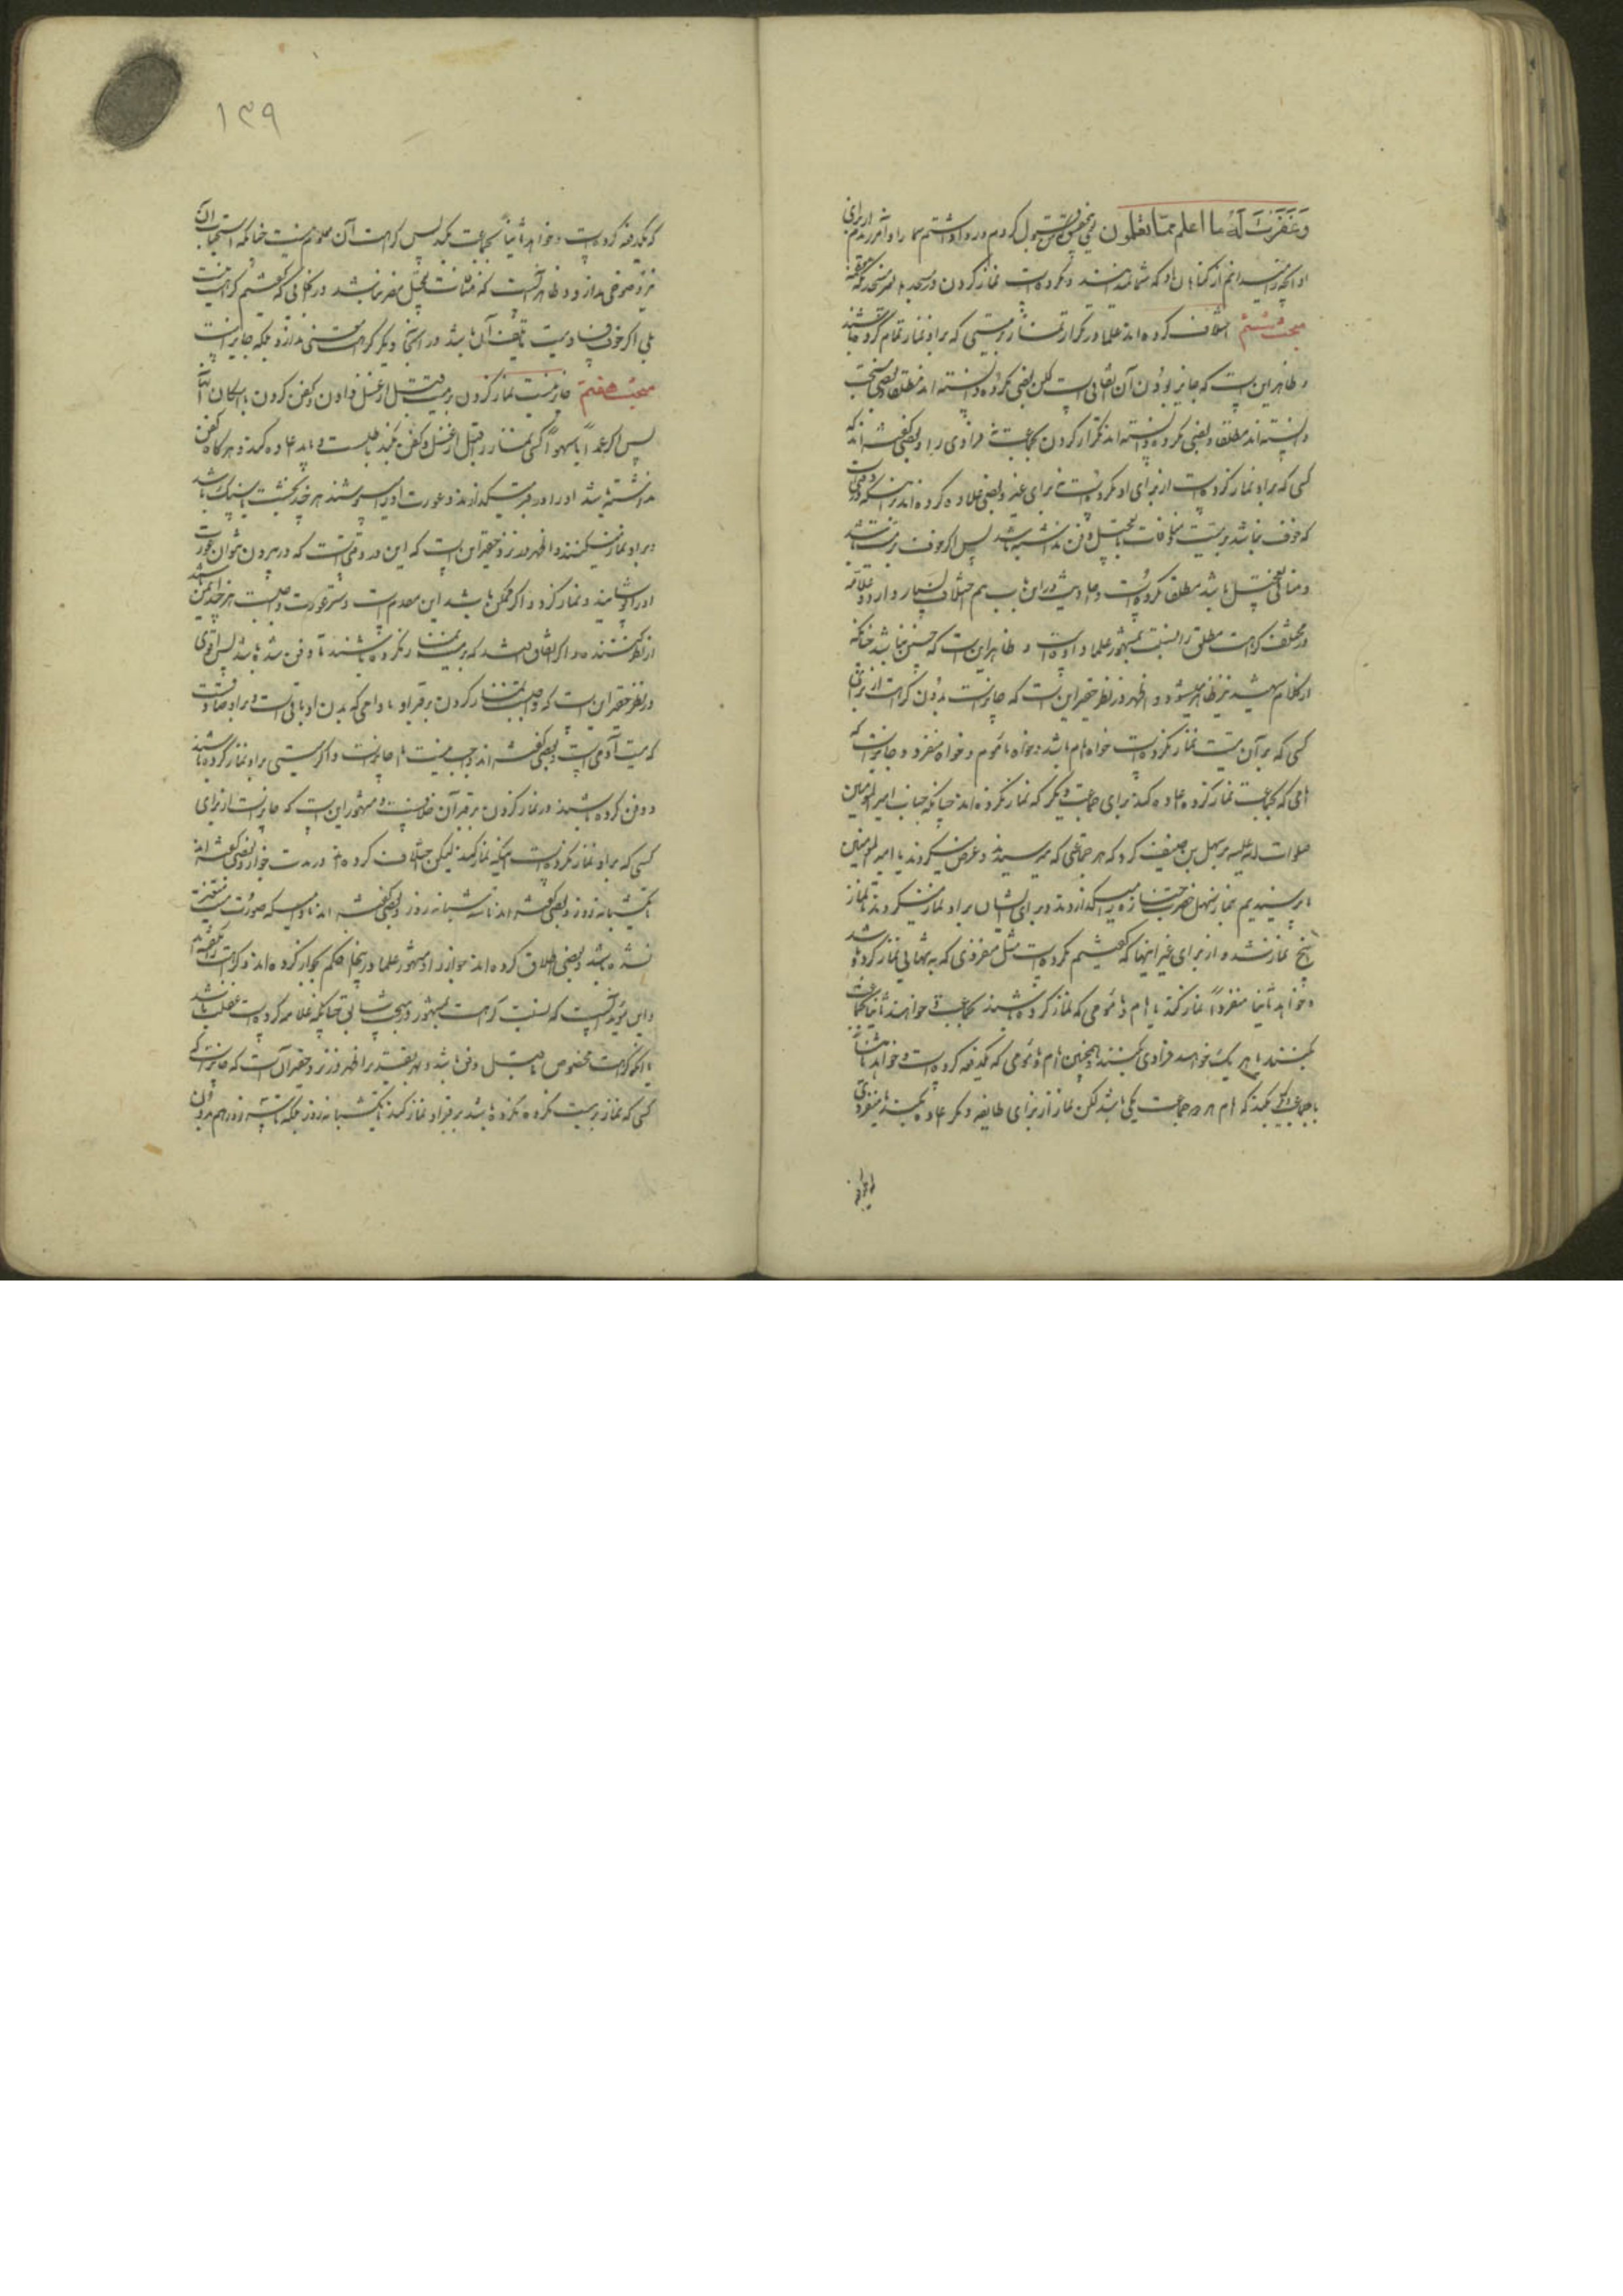 وَغَفَرْتُ لَهُ ما اعلم ممّا تعلمون یعنی قبول کردم و روا داشتم شما را و آمرزیدم از برای
او آنچه میدانم از گناهان او که شما ندانسته‌اید و مکروه است نماز کردن در مسجد مگر مسجد مکه
مبحث ششم اختلاف کرده‌اند علما در تکرار نماز بر میتی که بر او نماز تمام کرده باشند
و ظاهر این است که جایز بودن آن اتفاقی است لکن بعضی مکروه دانسته‌اند مطلقا و بعضی مستحب
دانسته‌اند مطلقا و بعضی مکروه دانسته‌اند تکرار کردن بجماعت نه فرادی را و بعضی گفته‌اند که
کسی که بر او نماز کرده است از برای او مکروه است نه برای غیر و بعضی علاوه کرده‌اند
که خوف نباشد بر میت
و منافی تعجیل باشد مطلقا مکروه است و احادیث در این باب هم اختلاف بسیار دارد و علامه
در مختلف کراهت مطلق را نسبت بمشهور علما داده است و ظاهر این است که چنین نباشد چنانکه
از کلام شهید نیز ظاهر میشود و اظهر در نظر حقیر این است که جایز است بدون کراهت از برای
کسی که بر آن میت نماز نکرده است خواه امام باشد و خواه مأموم و خواه منفرد و جایز است که
امامی که بجماعت نماز کرده اعاده کند برای جماعت دیگر که نماز نکرده‌اند چنانکه جناب امیرالمومنین
صلوات الله علیه بر سهل بن حنیف کرد که هر جماعتی که میرسیدند و عرض میکردند یا امیرالمومنین
ما نرسیدیم بنماز سهل حضرت جنازه را میگذاردند و برای ایشان بر او نماز میکردند تا نماز
پنج نماز شد و از برای غیر اینها که گفتیم مکروه است مثل منفردی که به تنهایی نماز کرده باشد
و خواهد ثانیا منفرداً نماز کند یا امام و مأمومی که نماز کرده باشند بجماعت و خواهند ثانیا بجماعت
بکنند یا هر یک خواهند فرادی بکنند و همچنین امام و مأمومی که یکدفعه کرده است و خواهد ثانیا
با جماعت دیگر بکند که امام هر دو جماعت یکی باشد لکن نماز از برای طایفه دیگر اعاده بکنند یا منفردی
که یکدفعه کرده است و خواهد ثانیاً بجماعت بکند پس کراهت آن معلوم نیست چنانکه استحباب آن
نیز وضوحی ندارد و ظاهر آنست که منافات تعجیل مضر نباشد در مکانی که گفتیم کراهت نیست
بلی اگر خوف فساد میت یا تعفن آن باشد در اینجا دیگر کراهت معنی ندارد بلکه جایز نیست
مبحث هفتم جایز نیست نماز کردن بر میت قبل از غسل دادن و کفن کردن با امکان آنها
پس اگر عمداً یا سهواً کسی نماز را قبل از غسل و کفن بکند باطلست و باید اعاده کند و هر گاه کفن
نداشته باشد او را در قبر میگذارند و عورت او را میپوشند هر چند بخشت یا سنگ باشد
و بر او نماز میکنند و اظهر در نزد حقیر این است که این در وقتی است که در بیرون نتوان عورت
او را پوشانید و نماز کرد و اگر ممکن باشد این مقدم است و ستر عورت واجبست هر چند ایمن باشند
از نظر کننده و اگر اتفاق افتد که بر میت نماز نکرده باشند تا دفن شده باشد پس اقوی
در نظر حقیر این است که واجبست نماز کردن بر قبر او مادامی که بدن او باقی است و بر او صادقست
که میت آدمی است و بعضی گفته‌اند واجب نیست اما جایز است و اگر میتی بر او نماز کرده باشند
و دفن کرده باشند در نماز کردن بر قبر آن خلافست و مشهور این است که جایز است از برای
کسی که بر او نماز نکرده است اینکه نماز کند لیکن اختلاف کرده‌اند در مدت جواز و بعضی گفته‌اند
تا یکشبانه روز و بعضی گفته‌اند تا سه شبانه روز و بعضی گفته‌اند تا وقتیکه صورت میت متغیر
نشده باشد و بعضی اطلاق کرده‌اند جواز را و مشهور علما در اینجا حکم بجواز کرده‌اند و کراهت را نگفته‌اند
و این مؤید آنست که نسبت کراهت بمشهور در مبحث سابق چنانکه علامه کرده است غفلت باشد
یا آنکه کراهت مخصوص ما قبل دفن باشد و بهر تقدیر اظهر در نزد حقیر آن است که جایز است که
کسی که نماز بر میت نکرده باشد بر قبر او نماز کند تا یکشبانه روز بلکه تا سه روز هم بدون
۱۳۹